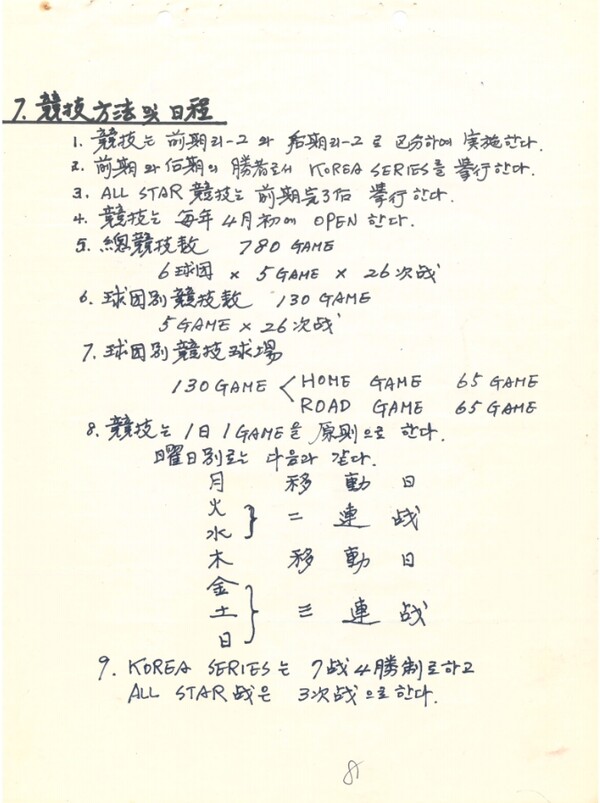 7. 競技方法 및 日程
1. 競技는 前期리-그와 后期리-그로 区分하여 実施한다.
2. 前期와 后期의 勝者로서 KOREA SERIES를 擧行한다.
3. ALL STAR 競技는 前期完了后 擧行한다.
4. 競技는 每年 4月初에 OPEN 한다.
5. 總競技数 780 GAME
6球団 × 5 GAME × 26次战
6. 球団別競技数 130 GAME
5 GAME × 26次战
7. 球団別競技球場
130 GAME < HOME GAME 65 GAME
ROAD GAME 65 GAME
8. 競技는 1日 1 GAME을 原則으로 한다.
曜日別로는 다음과 같다.
月 移動日
火
水 } 二連战
木 移動日
金
土 } 三連战
日
9. KOREA SERIES는 7战4勝制로하고
ALL STAR战은 3次战으로 한다.